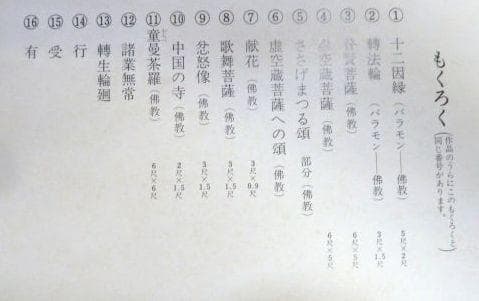 もくろく(作品のうらにこのもくろくと同じ番号があります。)
① 十二因縁(バラモン——佛教) 5尺×2尺
② 轉法輪(バラモン——佛教) 3尺×1.5尺
③ 普賢菩薩(佛教) 6尺×5尺
④ 虚空蔵菩薩(佛教) 6尺×5尺
⑤ ささげまつる頌 部分(佛教)
⑥ 虚空蔵菩薩への頌(佛教)
⑦ 献花(佛教) 3尺×0.9尺
⑧ 歌舞菩薩(佛教) 3尺×1.5尺
⑨ 忿怒像(佛教) 3尺×1.5尺
⑩ 中国の寺(佛教) 2尺×1.5尺
⑪ 童曼荼羅(佛教) 6尺×6尺
⑫ 諸業無常
⑬ 轉生輪廻
⑭ 行
⑮ 受
⑯ 有